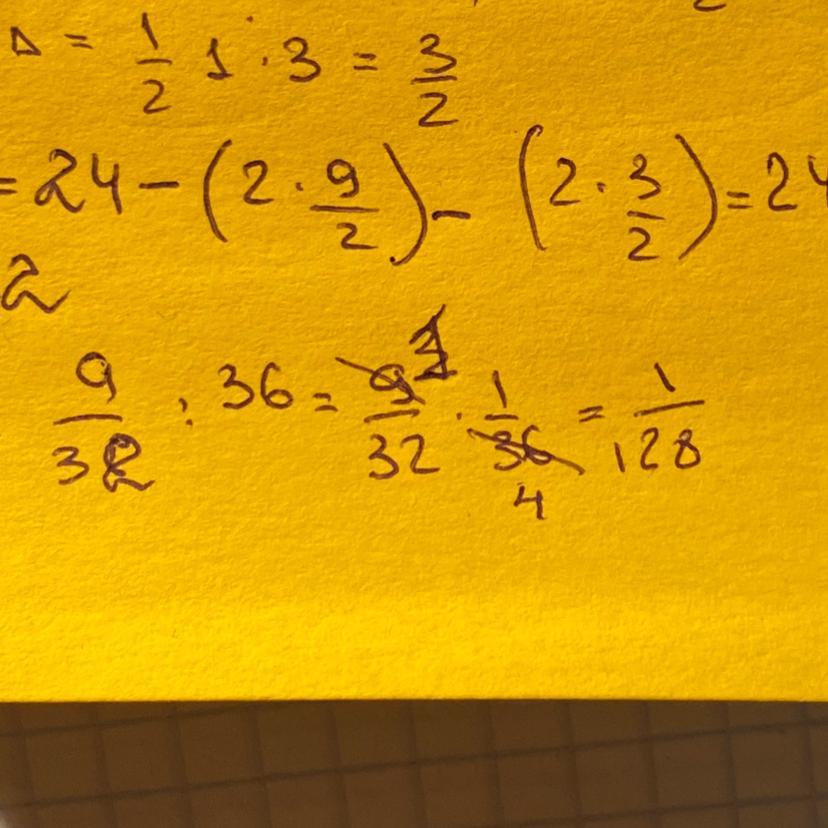 Δ = 1/2 1 · 3 = 3/2
= 24 - (2 · 9/2) - (2 · 3/2) = 24
2
9/32 : 36 = 9/32 1 · 1/36 4 = 1/128